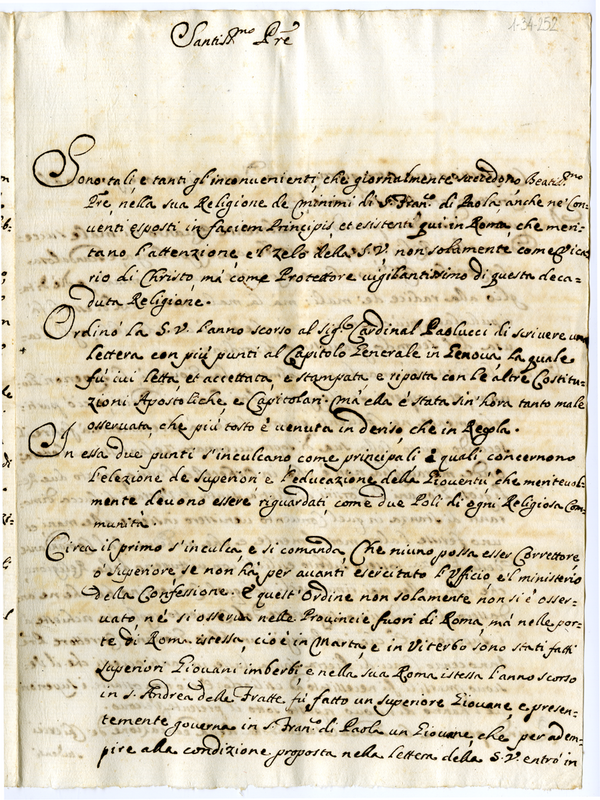 1-34-252
Santiss.mo Pre
Sono tali, e tanti gl'inconvenienti, che giornalmente succedono Beatiss.mo
Pre, nella sua Religione de Minimi di S. Fran.co di Paola, anche ne' Con-
venti esposti in faciem Principis, et esistenti qui in Roma, che meri-
tano l'attenzione, e l'zelo della S.V. non solamente come Vica-
rio di Christo, mà come Protettore vigilantissimo di questa deca-
duta Religione.
Ordinò la S. V. l'anno scorso al Sig.r Cardinal Paolucci di scrivere una
lettera con più punti al Capitolo Generale in Genova, la quale
fù ivi letta, et accettata, e stampata, e riposta con le altre Costitu-
zioni Apostoliche, e Capitolari. Mà ella è stata sin'hora tanto male
osservata, che più tosto è venuta in deriso, che in Regola.
In essa due punti s'inculcano come principali è quali concernono
l'elezione de Superiori e l'educazione della Gioventù, che meritevol-
mente devono essere riguardati, come due Poli di ogni Religiosa Com-
munità.
Circa il primo s'inculca, e si comanda, Che niuno possa esser Correttore,
ò Superiore, se non hà per avanti esercitato l'Ufficio, e'l ministerio
della Confessione. E quest'ordine non solamente non si è osser-
vato, nè si osserva nelle Provincie fuori di Roma, mà nelle por-
te di Roma istessa, cioè in Marta, e in Viterbo sono stati fatti
Superiori Giovani imberbi, e nella sua Roma istessa l'anno scorso
in S. Andrea delle Fratte fù fatto un Superiore Giovane, e presen-
temente governa in S. Fran.co di Paola un Giovane, che per adem-
pire alla condizione proposta nella lettera della S.V. entrò in